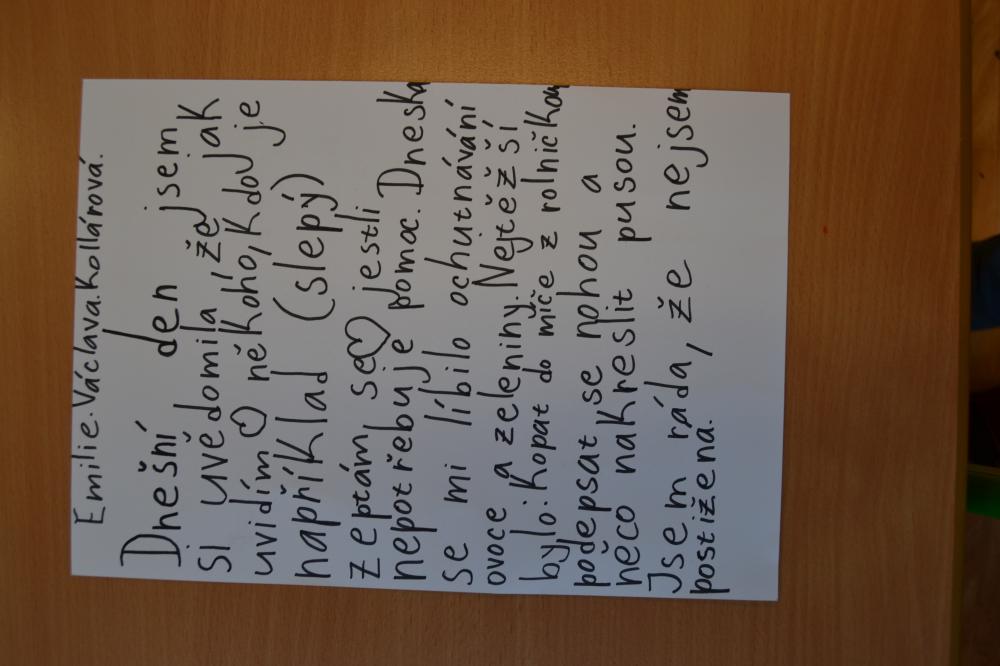 Emilie.Václava.Kollárová.
Dnešní den jsem
si uvědomila, že jak
uvidím někoho, kdo je
například (slepý)
zeptám se jestli
nepotřebuje pomoc. Dneska
se mi líbilo ochutnávání
ovoce a zeleniny. Nejtěžší
bylo: Kopat do míče z rolničkou
poďepsat se nohou a
něco nakreslit pusou.
Jsem ráda, že nejsem
postižena.